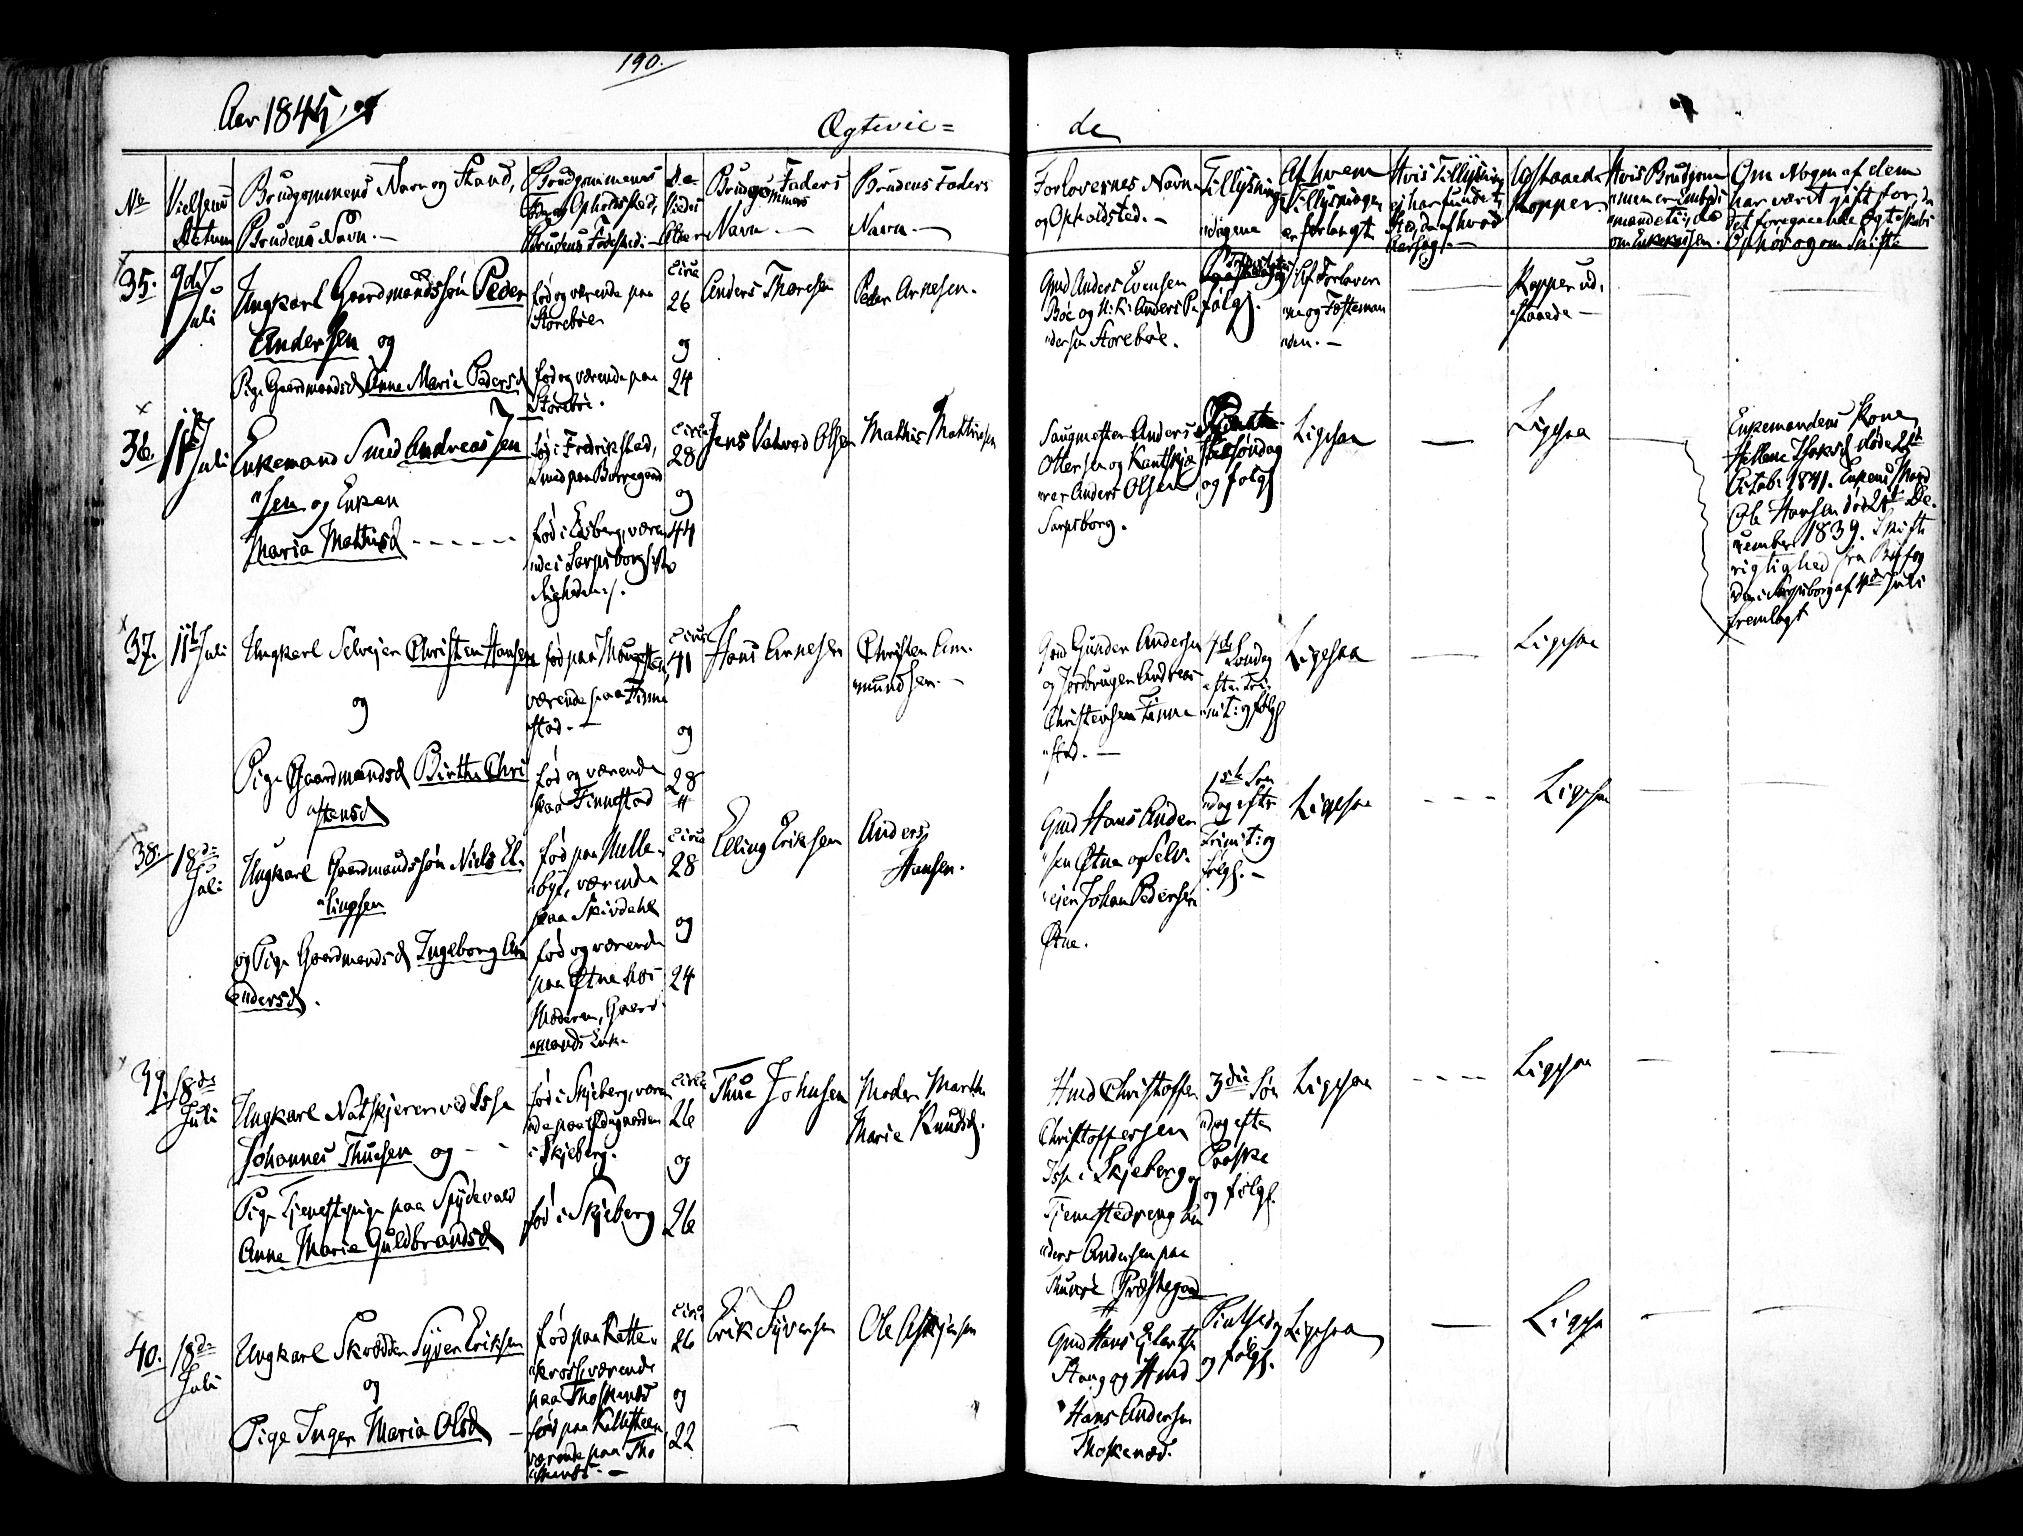 190.
Aar 1845
Ægtevie=
de
No
Vielsens Datum
Brudgommens Navn og Stand,
Brudens Navn.
Brudgommens
Opholdssted,
Brudens Fødested.
De
Viedes
Alder
Brudgommens Faders
Navn
Brudens Faders
Navn.
Forlovernes Navn
og Opholdsted.
Tillysnings
dagene
Af hvem
Tillysningen
er forlangt
Hvis Tillysning
ei har fundet
Sted, da af hvad
Aarsag.
Udstaaede
Kopper.
Hvis Brudgom
men er Embeds
mand
Om Nogen af dem
har været gift før, da
det foregaaende Ægteskabs
Ophør og om Skifte
35.
9de
Juli
Ungkarl Gaardmandssøn Peder
Andersen og
Pige Gaardmandsd Anne Marie Pedersd
fød og værende paa
Storebøe
fød og værende paa
Storebøe.
circa
26
og
24
Anders Thoresen
Peder Arnesen.
Gmd Anders Evensen
Bøe og Anders Pe
dersen Storebøe.
følg.
Af Forlover
ne og Fæsteman
den.
Kopper ud.
staaede
36.
11te Juli
Enkemand Smed Andreas Jen
sen og Enken
Maria Mathisd
fød i Fredrikstad,
Smed paa Borregaard
fød i Eidsberg, væren
de i Sarpsborg
circa
28
og
44
Jens Olsen
Mathis Mathiesen
Saugmester Anders
Ottersen og
Anders Olsen
Sarpsborg.
søndag
og følg
Ligesaa
Ligesaa
Enkemandens Kone
Hellene døde 21de
Octob: 1841. Enkens Mand
Ole Hansen død 21de De
cember 1839. Skifte
rigtighed fra Byfog
den i Sarpsborg af 4de Juli
fremlagt
37.
11te Juli
Ungkarl Selveier Christen Hansen
og
Pige Gaardmandsd Birthe Chri
stensd
fød paa
værende paa Finne
stad.
fød og værende
paa Finnestad
circa
41
og
28
Hans Arnesen
Christen Am
mundsen.
Gmd Gunder Andersen
og Jordbruger Andreas
Christensen Finne
stad.
4de
Søndag
efter Tri
nit: og følg
Ligesaa
Ligesaa
38.
18de
Juli
Ungkarl Gaardmandssøn Niels El
lingsen
og Pige Gaardmandsd Ingeborg An
dersd.
fød paa Melle
bye, værende
paa Skivdahl
fød og værende
paa Østne hos
Moderen, Gaard
mands Enke
circa
28
og
24
Elling Eriksen
Anders
Hansen.
Gmd Hans Ander
sen Østne og Selv
eier Johan Pedersen
Østne.
1ste Søn
dag efter
Trinit: og
følg.
Ligesaa
Ligesaa
39.
18de
Juli
Ungkarl ved Isse
Johannes Thuesen og
Pige Tjenestepige paa Spydevold
Anne Marie Guldbrandsd
fød i Skjeberg, væren
de paa
i Skjeberg.
fød i Skjeberg
circa
26
og
26
Thue Johnsen
Moder Marthe
Marie Knudsd.
Hmd Christoffer
Christoffersen
Isse i Skjeberg og
Tjenestedreng An
ders Andersen paa
Thunøe Præstegaard
3die Søn
dag efter
Paaske
og følg.
Ligesaa
Ligesaa
40.
18de
Juli
Ungkarl Skrædder Syver Eriksen
og
Pige Inger Maria Olsd
fød paa Katte
kross, værende
paa Thoskenæs
fød paa
værende paa Tho
skenæs.
circa
26
og
22
Erik Syversen
Ole Askjersen
Gmd Hans
Haug og Hmd
Hans Andersen
Thoskenæs.
Pintsedag
og følg.
Ligesaa
Ligesaa